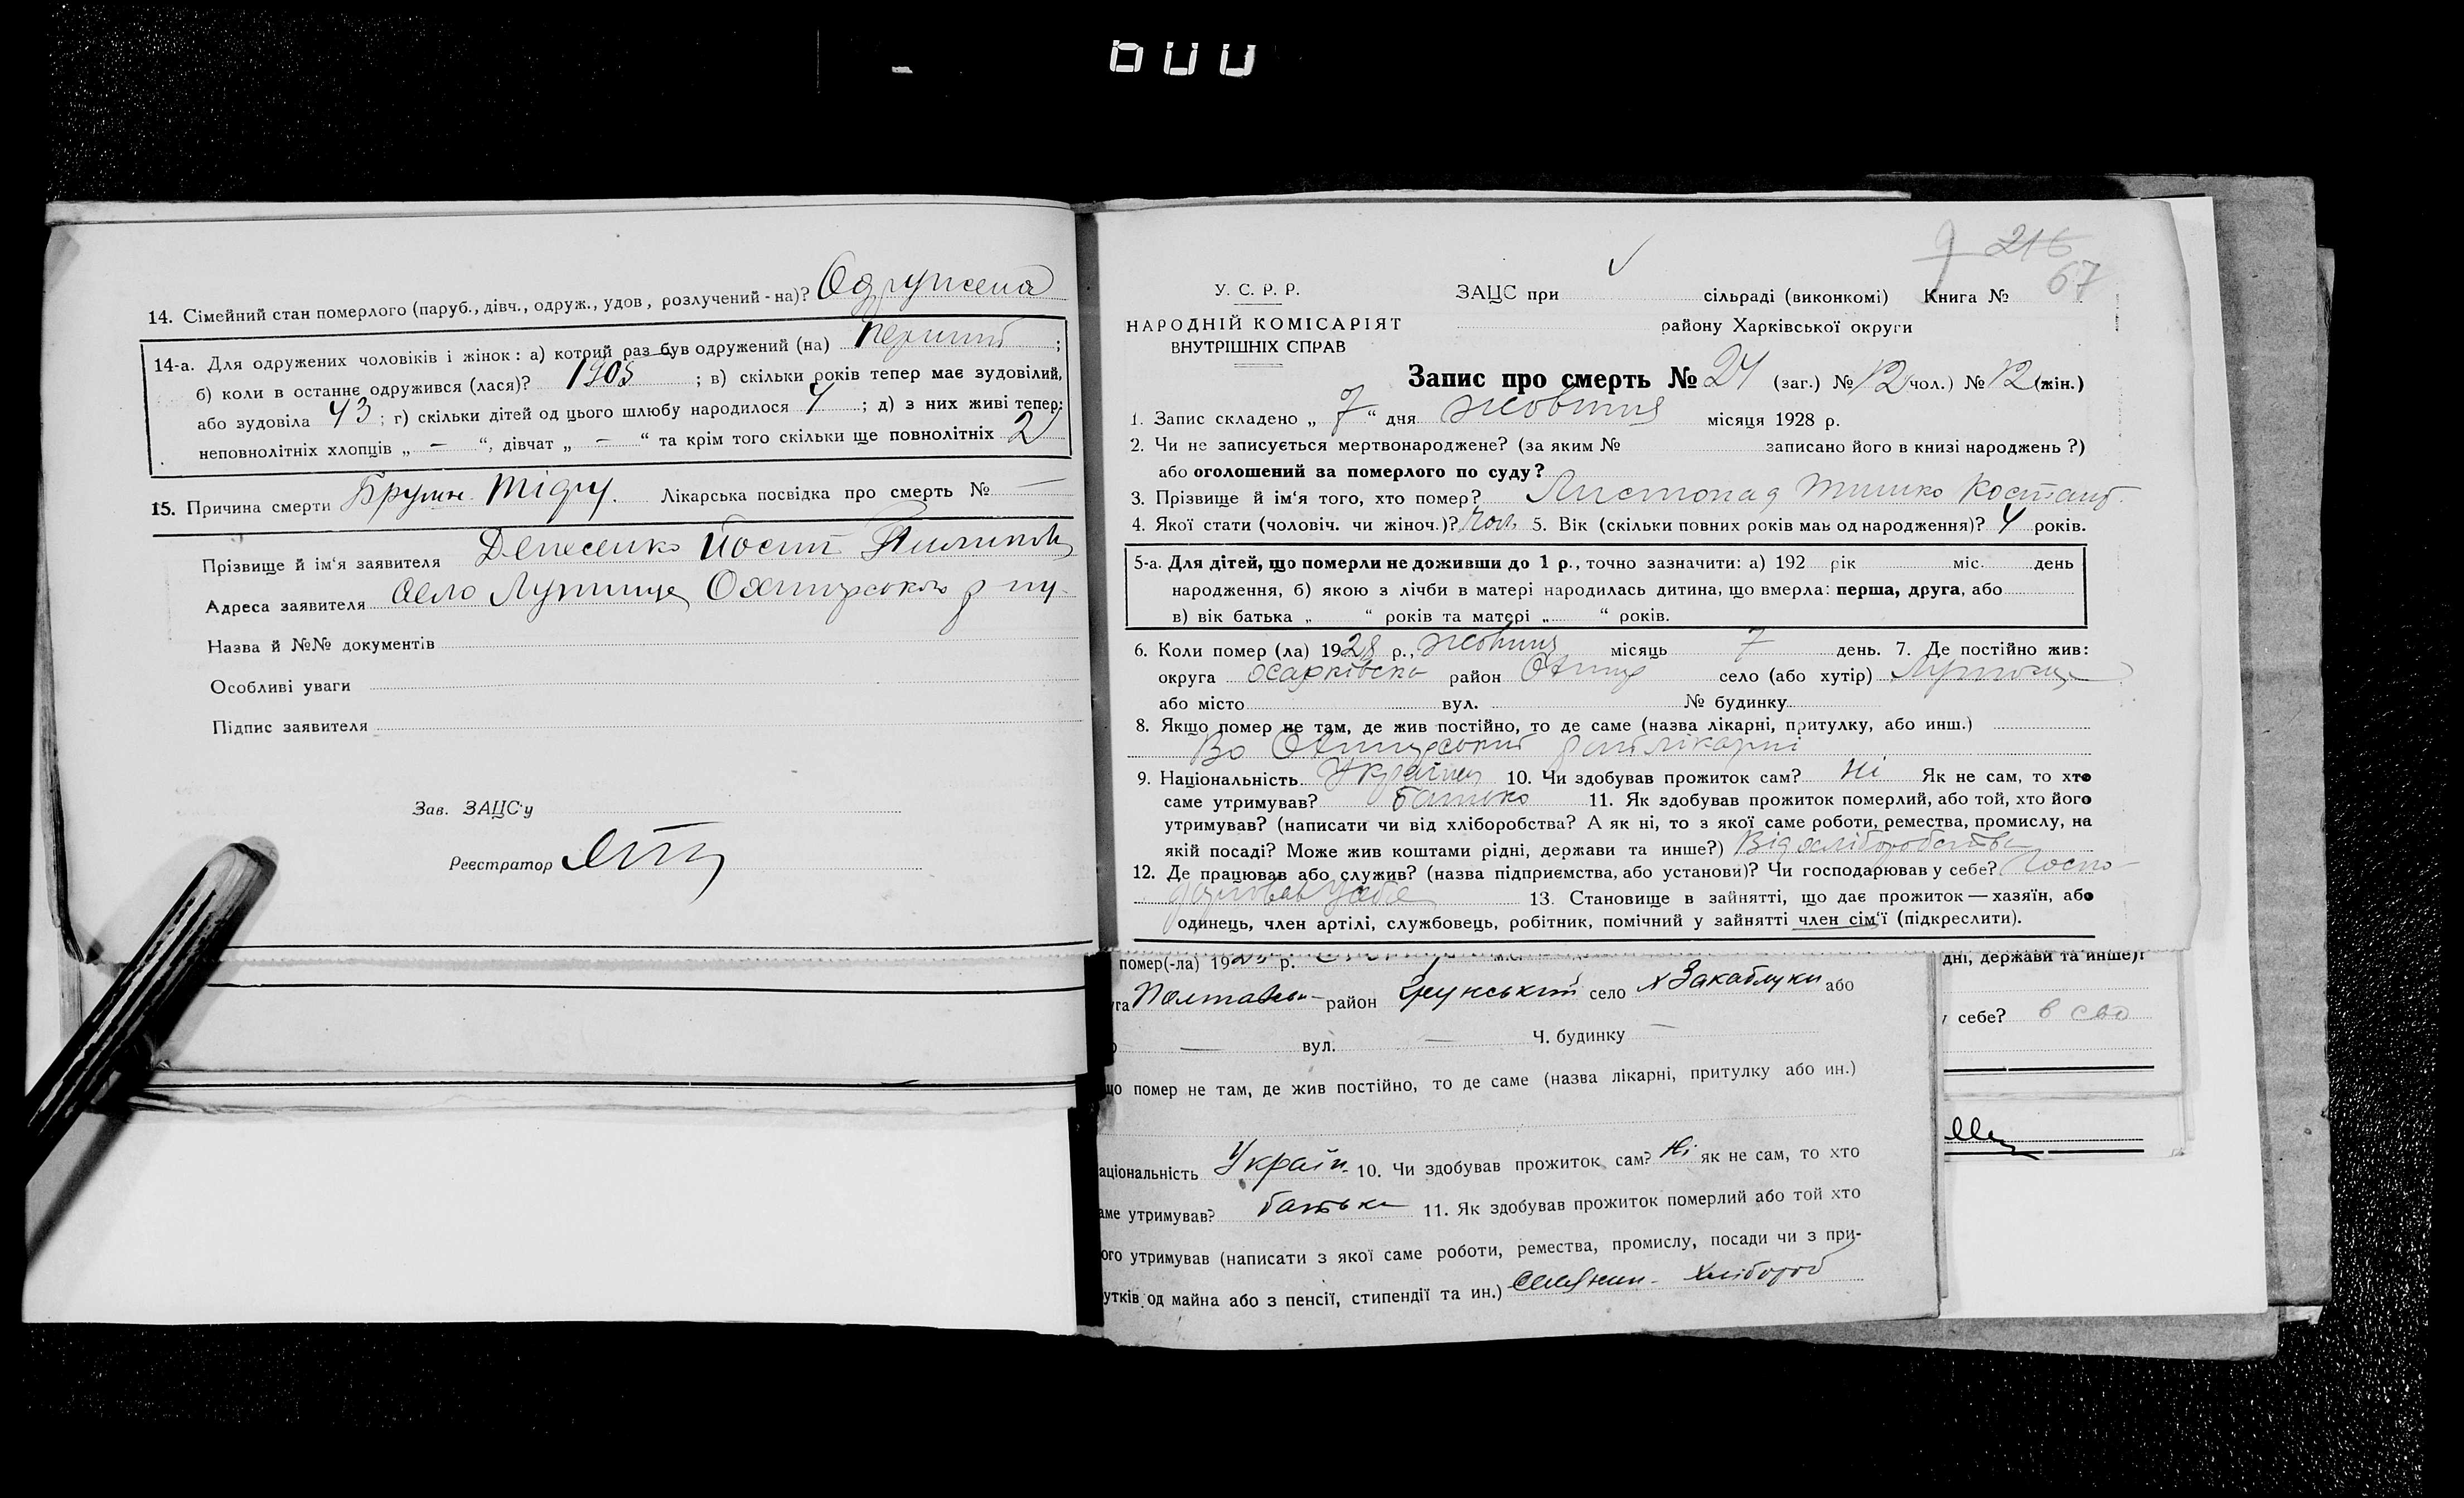 600
14. Сімейний стан померлого (паруб., дівч., одруж., удов, розлучений-на)? Одружена
14-а. Для одружених чоловіків і жінок: а) котрий раз був одружений (на) перший;
б) коли в останнє одружився (лася)? 1905; в) скільки років тепер має зудовілий,
або зудовіла 43; г) скільки дітей од цього шлюбу народилося 4; д) з них живі тепер:
неповнолітніх хлопців „ — “, дівчат „ — “ та крім того скільки ще повнолітніх 2
15. Причина смерти тіфу. Лікарська посвідка про смерть № —
Прізвище й ім'я заявителя Денесенко Йосип
Адреса заявителя село
Назва й №№ документів
Особливі уваги
Підпис заявителя
Зав. ЗАЦС'у
Реєстратор
9 216
67
У. С. Р. Р.
НАРОДНІЙ КОМІСАРІЯТ
ВНУТРІШНІХ СПРАВ
ЗАЦС при сільраді (виконкомі) Книга №
району Харківської округи
Запис про смерть № 24 (заг.) № 12 (чол.) № 12 (жін.)
1. Запис складено „ 7 “ дня жовтня місяця 1928 р.
2. Чи не записується мертвонароджене? (за яким № записано його в книзі народжень ?)
або оголошений за померлого по суду?
3. Прізвище й ім'я того, хто помер? Листопад Тишко Костант.
4. Якої стати (чоловіч. чи жіноч.)? Чол. 5. Вік (скільки повних років мав од народження)? 4 років.
5-а. Для дітей, що померли не доживши до 1 р., точно зазначити: а) 192 рік міс. день
народження, б) якою з лічби в матері народилась дитина, що вмерла: перша, друга, або
в) вік батька „ “ років та матері „ “ років.
6. Коли помер (ла) 1928 р., жовтня місяць 7 день. 7. Де постійно жив:
округа Харківска район село (або хутір)
або місто вул. № будинку
8. Якщо помер не там, де жив постійно, то де саме (назва лікарні, притулку, або инш.)
Во лікарні
9. Національність Украінец 10. Чи здобував прожиток сам? Ні Як не сам, то хто
саме утримував? батько 11. Як здобував прожиток померлий, або той, хто його
утримував? (написати чи від хліборобства? А як ні, то з якої саме роботи, ремества, промислу, на
якій посаді? Може жив коштами рідні, держави та инше?) Від хліборобства
12. Де працював або служив? (назва підприємства, або установи)? Чи господарював у себе? Госпо-
дарював у себе 13. Становище в зайнятті, що дає прожиток — хазяїн, або
одинець, член артілі, службовець, робітник, помічний у зайнятті член сім'ї (підкреслити).
помер(-ла) 192 р.
уга Полтавськ- район Грунський село х Закаблуки або
о — вул. — Ч. будинку —
що помер не там, де жив постійно, то де саме (назва лікарні, притулку або ин.)
аціональність Україн. 10. Чи здобував прожиток сам? Ні як не сам, то хто
аме утримував? батьки 11. Як здобував прожиток померлий або той хто
ого утримував (написати з якої саме роботи, ремества, промислу, посади чи з при-
утків од майна або з пенсії, стипендії та ин.) Селянин- хлібороб
дні, держави та инше)?
у себе? в сво